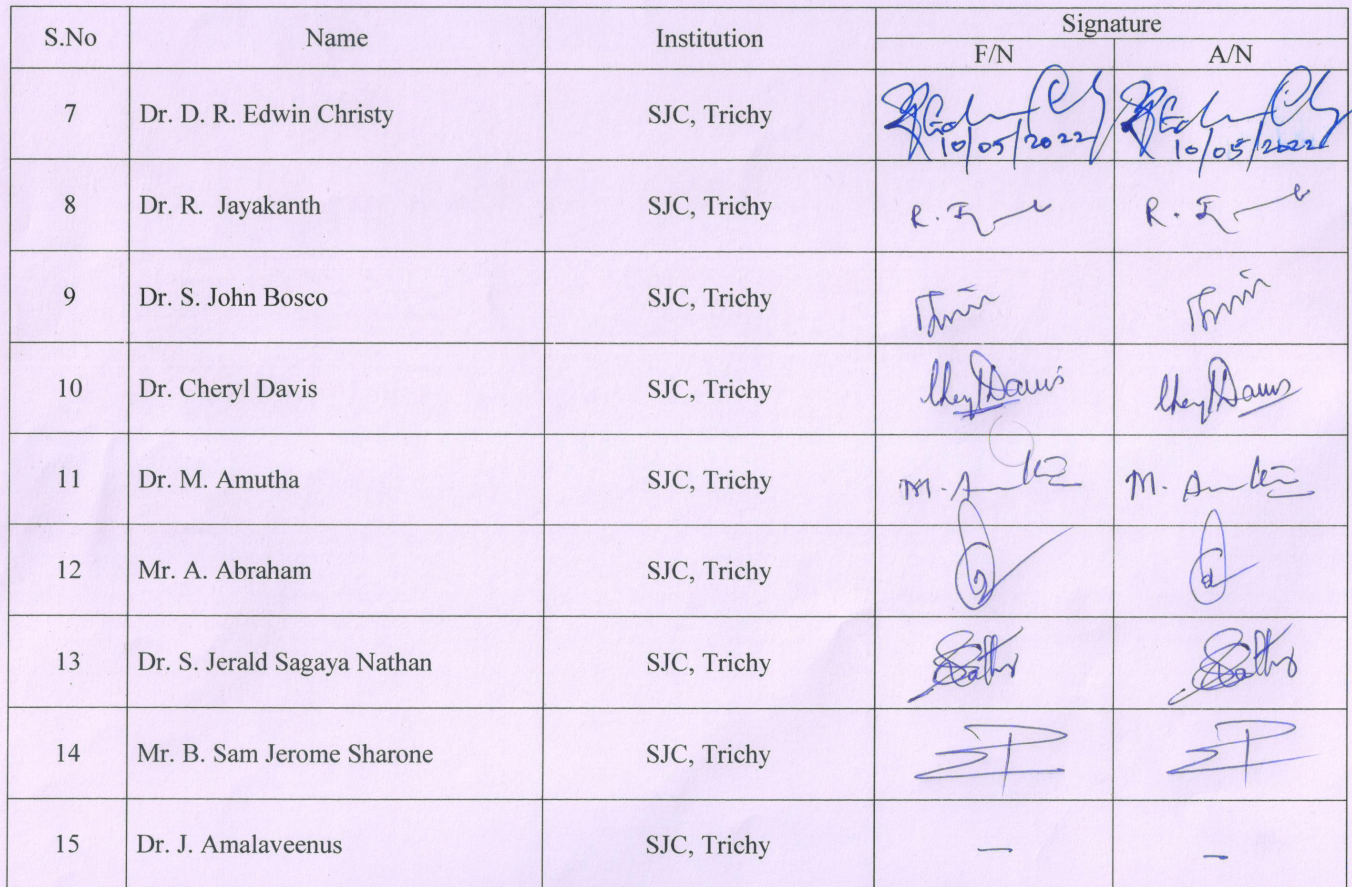 S.No Name Institution Signature
F/N A/N
7 Dr. D. R. Edwin Christy SJC, Trichy
10/05/2022 10/05/2022
8 Dr. R. Jayakanth SJC, Trichy R. R.
9 Dr. S. John Bosco SJC, Trichy
10 Dr. Cheryl Davis SJC, Trichy Davis Davis
11 Dr. M. Amutha SJC, Trichy M. M.
12 Mr. A. Abraham SJC, Trichy
13 Dr. S. Jerald Sagaya Nathan SJC, Trichy
14 Mr. B. Sam Jerome Sharone SJC, Trichy
15 Dr. J. Amalaveenus SJC, Trichy — –